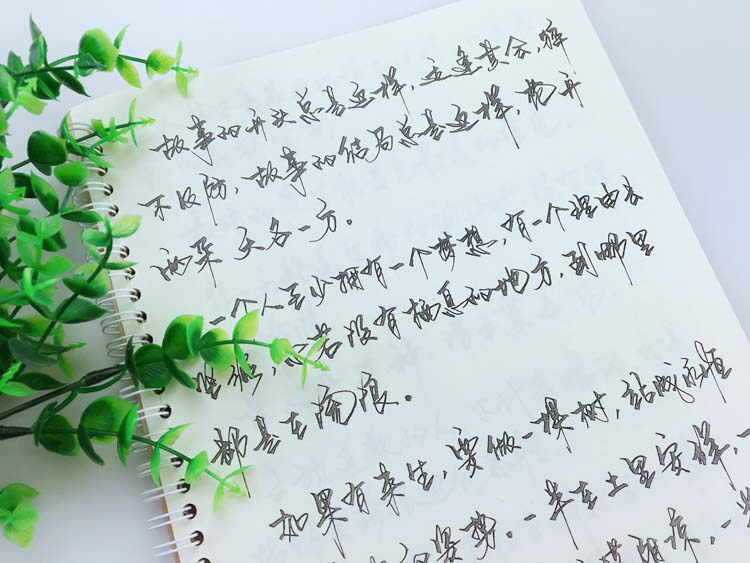 故事的开头总是这样，适逢其会，猝
不及防，故事的结局总是这样，花开
两朵 天各一方。
一个人至少拥有一个梦想，有一个理由去
坚强，心若没有栖息的地方，到哪里
都是在流浪。
如果有来生，要做一棵树，站成永恒
的姿势，一半在土里安详，一
凉，一